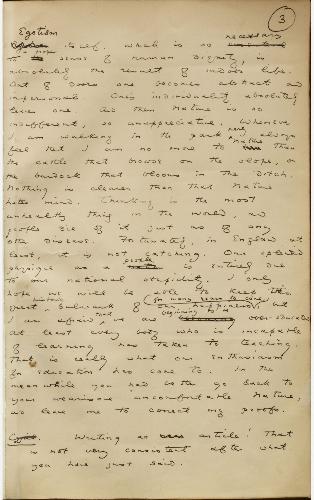 3
Egotism necessary
itself, which is so
to a proper sense of human dignity, is
absolutely the result of indoor life.
Out of doors one becomes abstract and
impersonal. One's individuality absolutely
leaves one. And then Nature is so
indifferent, so unappreciative. Whenever
I am walking in the park here, I always
feel that I am no more to Nature than
the cattle that browse on the slope, or
the burdock that blooms in the ditch.
Nothing is clearer than that Nature
hates mind. Thinking is the most
unhealthy thing in the world, and
people die of it just as of any
other disease. Fortunately, in England at
least, it is not catching. Our splendid
physique as a people is entirely due
to our national stupidity. I only
hope we will be able to keep this
great historic bulwark of our happiness for many years to come; but
I am afraid that we are beginning to be over-educated
at least every body who is incapable
of learning has taken to teaching.
That is really what our enthusiasm
for education has come to. In the
meanwhile you had better go back to
your wearisome uncomfortable Nature,
and leave me to correct my proofs.
Cyril. Writing an article! That
is not very consistent after what
you have just said.